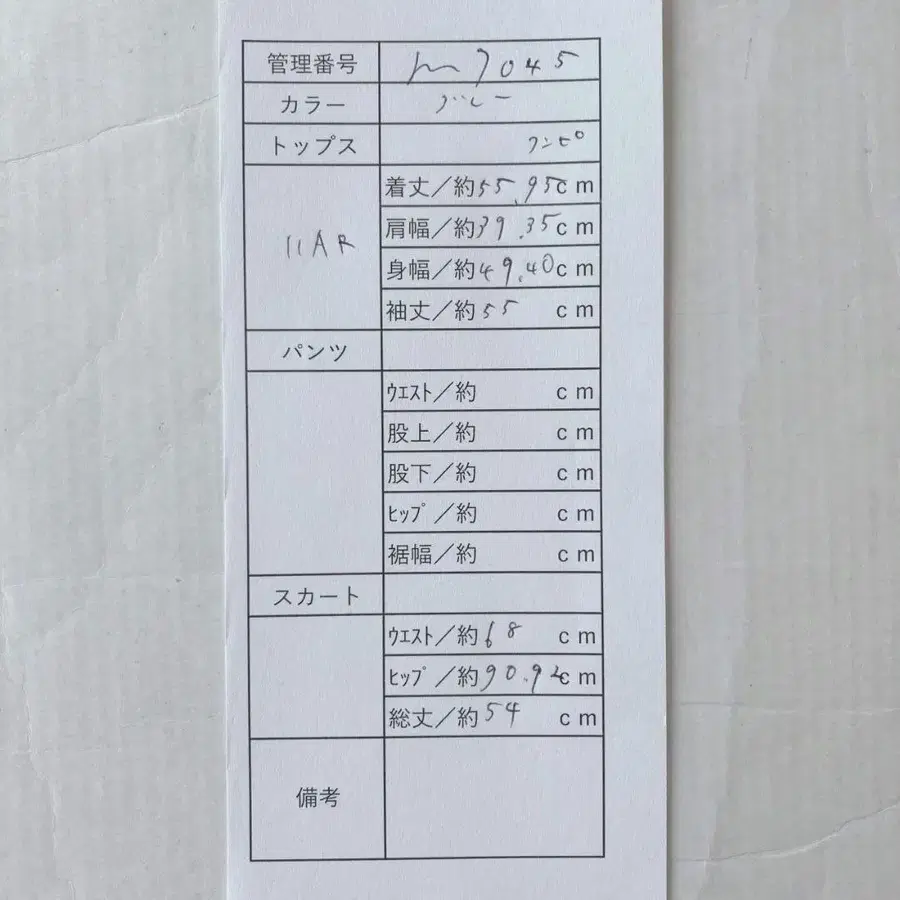 管理番号 m7045
カラー グレー
トップス ワンピ
11AR
着丈／約55.95cm
肩幅／約39.35cm
身幅／約49.40cm
袖丈／約55 cm
パンツ
ウエスト／約 cm
股上／約 cm
股下／約 cm
ヒップ／約 cm
裾幅／約 cm
スカート
ウエスト／約68 cm
ヒップ／約90.92cm
総丈／約54 cm
備考